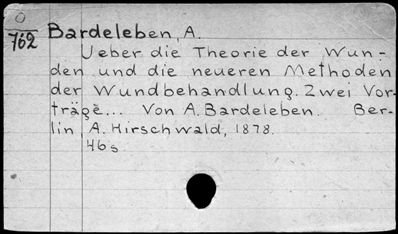 762 Bardeleben, A.
Ueber die Theorie der Wun-
den und die neueren Methoden
der Wundbehandlung. Zwei Vor-
träge... Von A. Bardeleben. Ber-
lin, A. Hirschwald, 1878.
46s